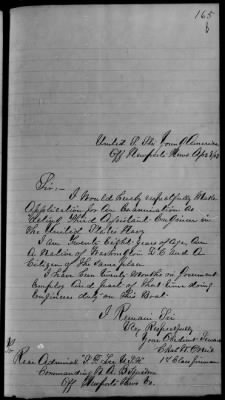 165
6
United S. Str Young America
Off Newports News Apr 2/63
Sir:-
I Would hereby respectfully Make
Application for An Examination as
Acting Third Assistant Engineer in
the United States Navy
I am Twenty Eight years of Age, Am
A Native of Washington D.C. and A
Citizen of the same place
I have been Twenty Months on Government
Employ And part of that time doing
Engineers duty on This Boat.
I Remain Sir
Very Respectfully
Your Obedient Servant
Chas.
1st Class fireman
To
Rear Admiral S. P. Lee U.S.N.
Commanding N. A. B. Squadron
Off Newports News Va.